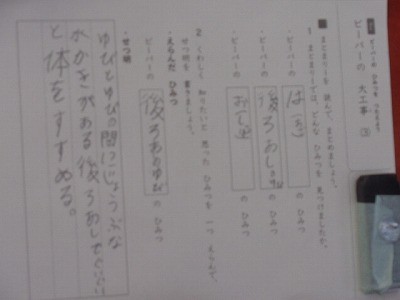 ビーバーの 大工事 ③
■ まとまりⅡを 読んで、まとめましょう。
1 まとまりⅡでは、どんな ひみつを 見つけましたか。
・ビーバーの は の ひみつ
・ビーバーの 後ろあし の ひみつ
・ビーバーの お の ひみつ
2 くわしく 知りたいと 思った ひみつを 一つ えらんで、
せつ明を 書きましょう。
・えらんだ ひみつ
ビーバーの 後ろあし の ひみつ
・せつ明
ゆびとゆびの間にじょうぶな
水かきがある後ろあしでぐいぐい
と体をすすめる。